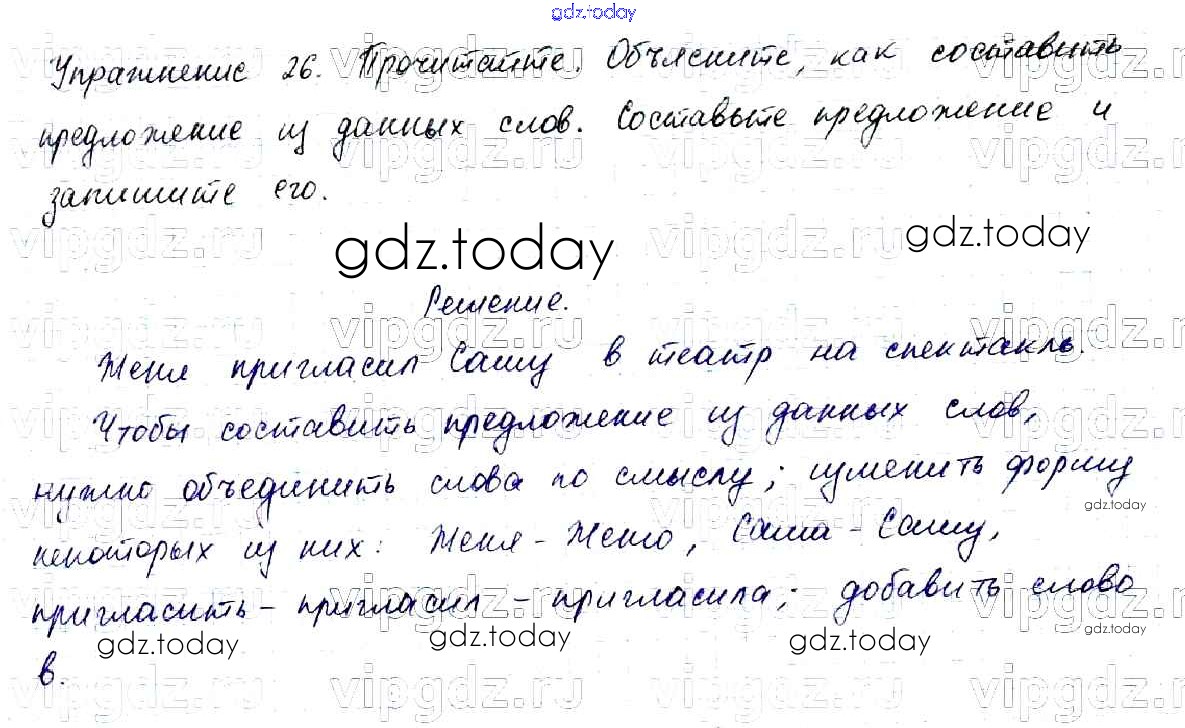 gdz.today
Упражнение 26. Прочитайте. Объясните, как составить
предложение из данных слов. Составьте предложение и
запишите его.
gdz.today gdz.today
Решение.
Женя пригласил Сашу в театр на спектакль.
Чтобы составить предложение из данных слов,
нужно объединить слова по смыслу; изменить форму
gdz.today
некоторых из них: Женя - Женю, Саша - Сашу,
пригласить - пригласил - пригласила; добавить слово
gdz.today gdz.today gdz.today gdz.today
в.
vipgdz.ru vipgdz.ru vipgdz.ru vipgdz.ru